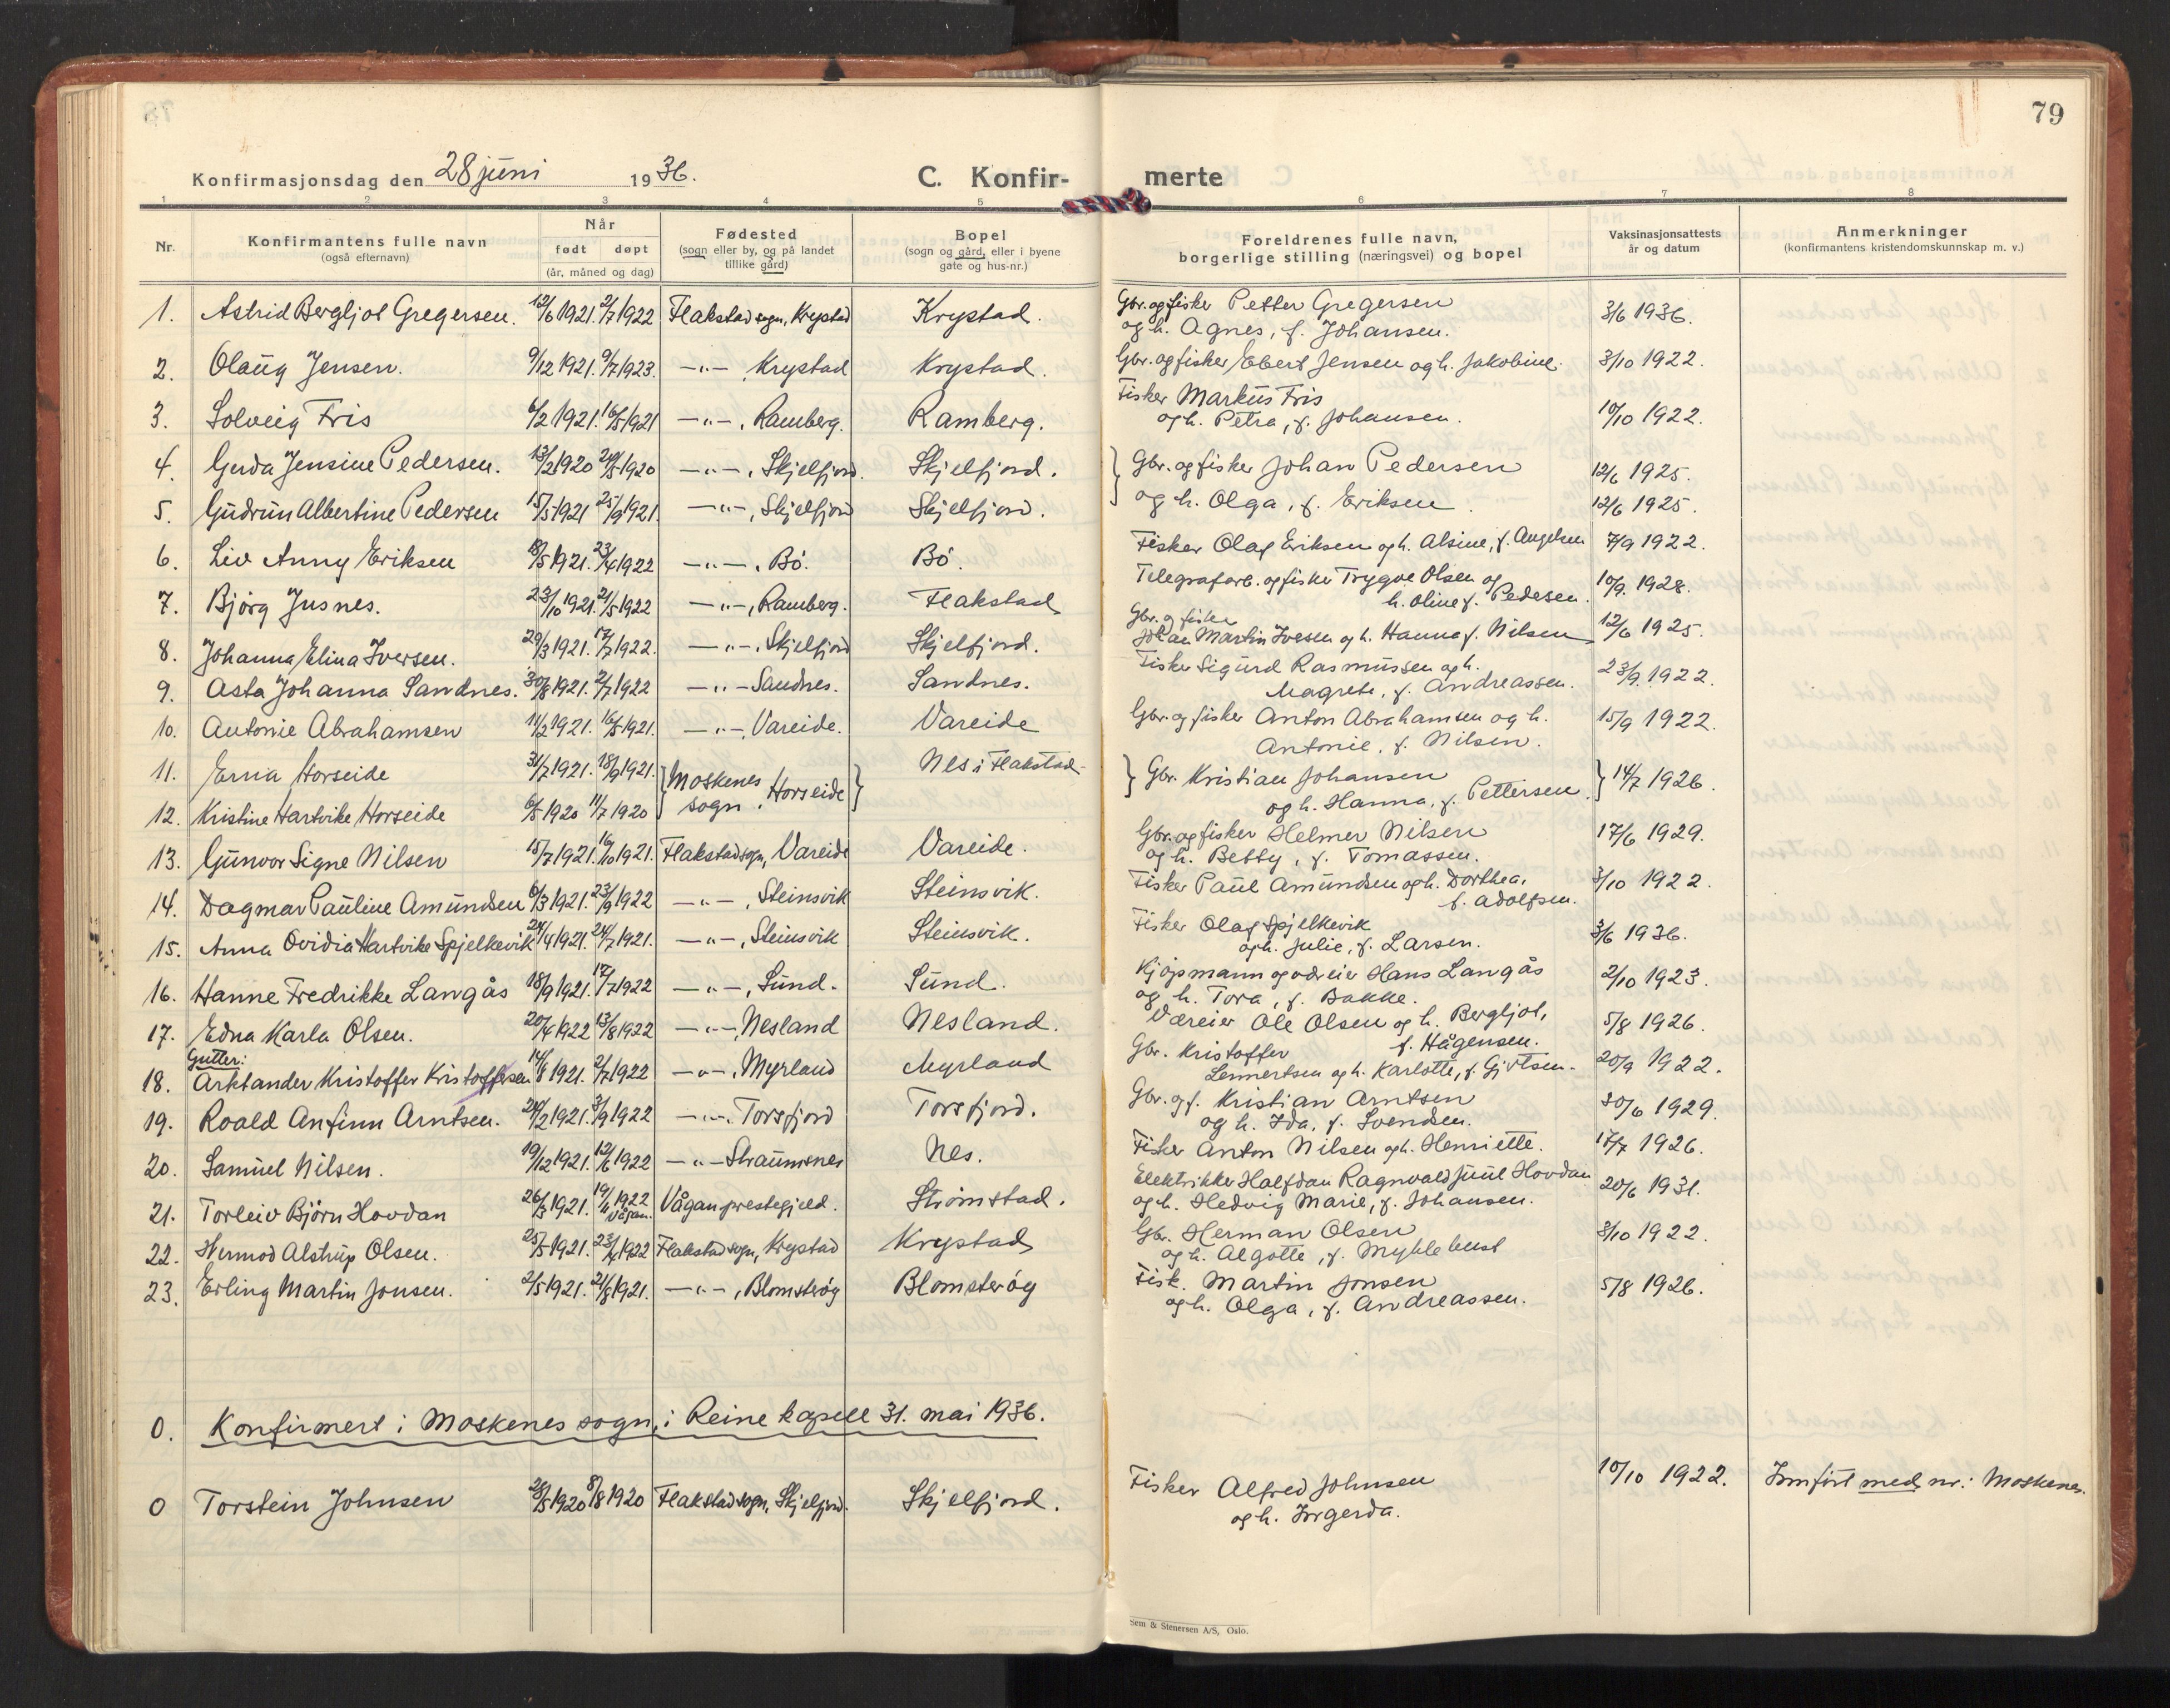 79
Konfirmasjonsdag den 28 juni 1936. C. Konfir- merte
1 2 3 4 5 6 7 8
Nr. Konfirmantens fulle navn (også efternavn) Når født døpt (år, måned og dag) Fødested (sogn eller by, og på landet tillike gård) Bopel (sogn og gård, eller i byene gate og hus-nr.) Foreldrenes fulle navn, borgerlige stilling (næringsvei) og bopel Vaksinasjonsattests år og datum Anmerkninger (konfirmantens kristendomskunnskap m. v.)
1. Astrid Bergljot Gregersen. 12/6 1921 2/7 1922 Flakstad sogn, Krystad Krystad. Gbr. og fisker Petter Gregersen og h. Agnes, f. Johansen. 3/6 1936.
2. Olaug Jensen. 9/12 1921. 9/7 1923. —"— Krystad Krystad. Gbr. og fisker Ebert Jensen og h. Jakobine. 3/10 1922.
3. Solveig Fris 6/2 1921. 16/5 1921 —"—, Ramberg. Ramberg. Fisker Markus Fris og h. Petra, f. Johansen. 10/10 1922.
4. Gerda Jensine Pedersen. 13/2 1920 24/5 1920 —"—, Skjelfjord. Skjelfjord. } Gbr. og fisker Johan Pedersen 12/6 1925.
5. Gudrun Albertine Pedersen 15/5 1921 25/9 1921. —"—, Skjelfjord Skjelfjord. og h. Olga, f. Eriksen. 12/6 1925.
6. Liv Anny Eriksen 18/5 1921. 23/4 1922 —"—, Bö. Bö. Fisker Olaf Eriksen og h. Alsine, f. Angelsen 7/9 1922.
7. Björg Jusnes. 23/10 1921. 21/5 1922 —"—, Ramberg. Flakstad Telegrafarb. og fisker Trygve Olsen og h. Oline f. Pedersen. 10/9. 1928.
8. Johanna Elina Iversen. 29/3 1921. 17/7 1922. —"—, Skjelfjord Skjelfjord. Gbr. og fisker Johan Martin Iversen og h. Hanna f. Nilsen 12/6 1925.
9. Asta Johanna Sandnes. 30/8 1921. 2/7 1922 —"— Sandnes. Sandnes. Fisker Sigurd Rasmussen og h. Magrete, f. Andreassen. 23/9. 1922.
10. Antonie Abrahamsen 11/2 1921. 16/5 1921. —"—, Vareide. Vareide Gbr. og fisker Anton Abrahamsen og h. Antonie, f. Nilsen. 15/9 1922.
11. Erna Horseide 31/7 1921. 18/9 1921. } Moskenes sogn, Horseide } Nes i Flakstad } Gbr. Kristian Johansen og h. Hanna, f. Pettersen. } 14/7 1926.
12. Kristine Hartvike Horseide 6/5 1920 11/7 1920
13. Gunvor Signe Nilsen 15/7 1921. 16/10 1921. Flakstad sogn, Vareide Vareide. Gbr. og fisker Helmer Nilsen og h. Betty, f. Tomassen. 17/6 1929.
14. Dagmar Pauline Amundsen 6/3 1921. 23/9 1922 —"—, Steinsvik Steinsvik. Fisker Paul Amundsen og h. Dorthea, f. Adolfsen. 3/10 1922.
15. Anna Ovidia Hartvike Spjelkevik 24/4 1921. 24/7 1921. —"—, Steinsvik Steinsvik. Fisker Olaf Spjelkevik og h. Julie, f. Larsen. 3/6 1936.
16. Hanne Fredrikke Langås 18/9 1921. 17/7 1922 —"—, Sund. Sund. Kjöpmann og væreier Hans Langås og h. Tora, f. Bakke. 2/10 1923.
17. Edna Karla Olsen. 20/4 1922 13/8 1922 —"—, Nesland Nesland. Væreier Ole Olsen og h. Bergljot, f. Hågensen. 5/8 1926.
Gutter:
18. Arktander Kristoffer Kristoffersen 14/8 1921. 2/7 1922 —"—, Myrland Myrland Gbr. Kristoffer Lennertsen og h. Karlotte, f. Gjertsen. 20/9 1922.
19. Roald Anfinn Arntsen. 24/2 1921. 3/9 1922 —"—, Torsfjord Torsfjord. Gbr. og f. Kristian Arntsen og h. Ida, f. Svendsen. 20/6 1929.
20. Samuel Nilsen. 19/12 1921. 12/6 1922 —"— Straumsnes Nes. Fisker Anton Nilsen og h. Henriette. 17/7 1926.
21. Torleiv Björn Hovdan 26/3 1921. 19/11 1922 Vågan. Vågan prestegjeld. Strömstad. Elektrikker Halfdan Ragnvald Juul Hovdan og h. Hedvig Marie, f. Johansen. 20/6 1931.
22. Hermod Alstrup Olsen. 25/5 1921. 23/4 1922 Flakstad sogn, Krystad Krystad Gbr. Herman Olsen og h. Algotte, f. Myklebust 3/10 1922.
23. Erling Martin Jonsen. 2/5 1921. 21/8 1921. —"—, Blomsteröy Blomsteröy Fisk. Martin Jonsen og h. Olga, f. Andreassen. 5/8 1926.
0. Konfirmert i Moskenes sogn, i Reine kapell 31. mai 1936.
0 Torstein Johnsen 28/5 1920 8/8 1920 Flakstad sogn, Skjelfjord. Skjelfjord. Fisker Alfred Johnsen og h. Ingerda. 10/10 1922. Innfört med nr. i Moskenes.
Sem & Stenersen A/S, Oslo.